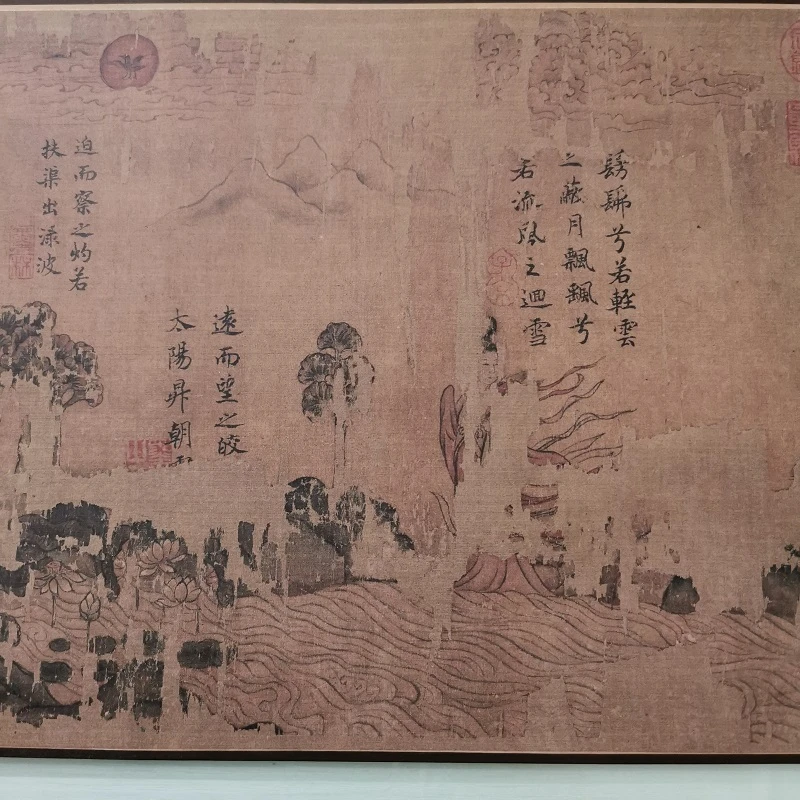 髣髴兮若輕雲
之蔽月飄颻兮
若流風之迴雪
遠而望之皎
太陽昇朝
迫而察之灼若
扶渠出渌波